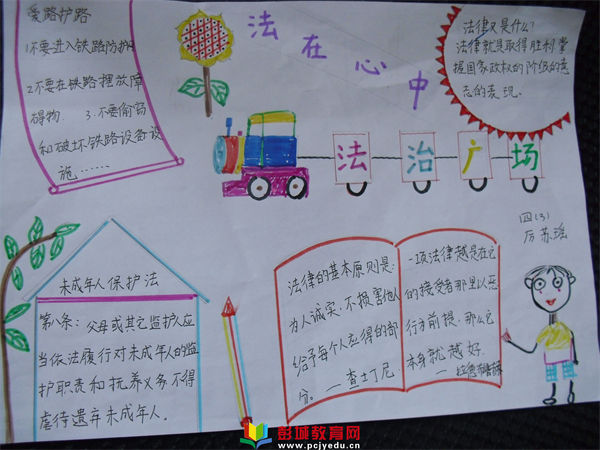 爱路护路
1不要进入铁路防护网
2.不要在铁路摆放障
碍物. 3.不要偷窃
和破坏铁路设备设
施……
法在心中
法律又是什么?
法律就是取得胜利掌
握国家政权的阶级的意
志的表现.
法治广场
四(3)
厉苏瑶
未成年人保护法
第八条:父母或其它监护人应
当依法履行对未成年人的监
护职责和抚养义务不得
虐待遗弃未成年人.
法律的基本原则是:
为人诚实,不损害他人
给予每个人应得的部
分. —查士丁尼
一项法律越是在它
的接受者那里以恶
行为前提,那么它
本身就越好.
彭城教育网
www.pcjyedu.cn